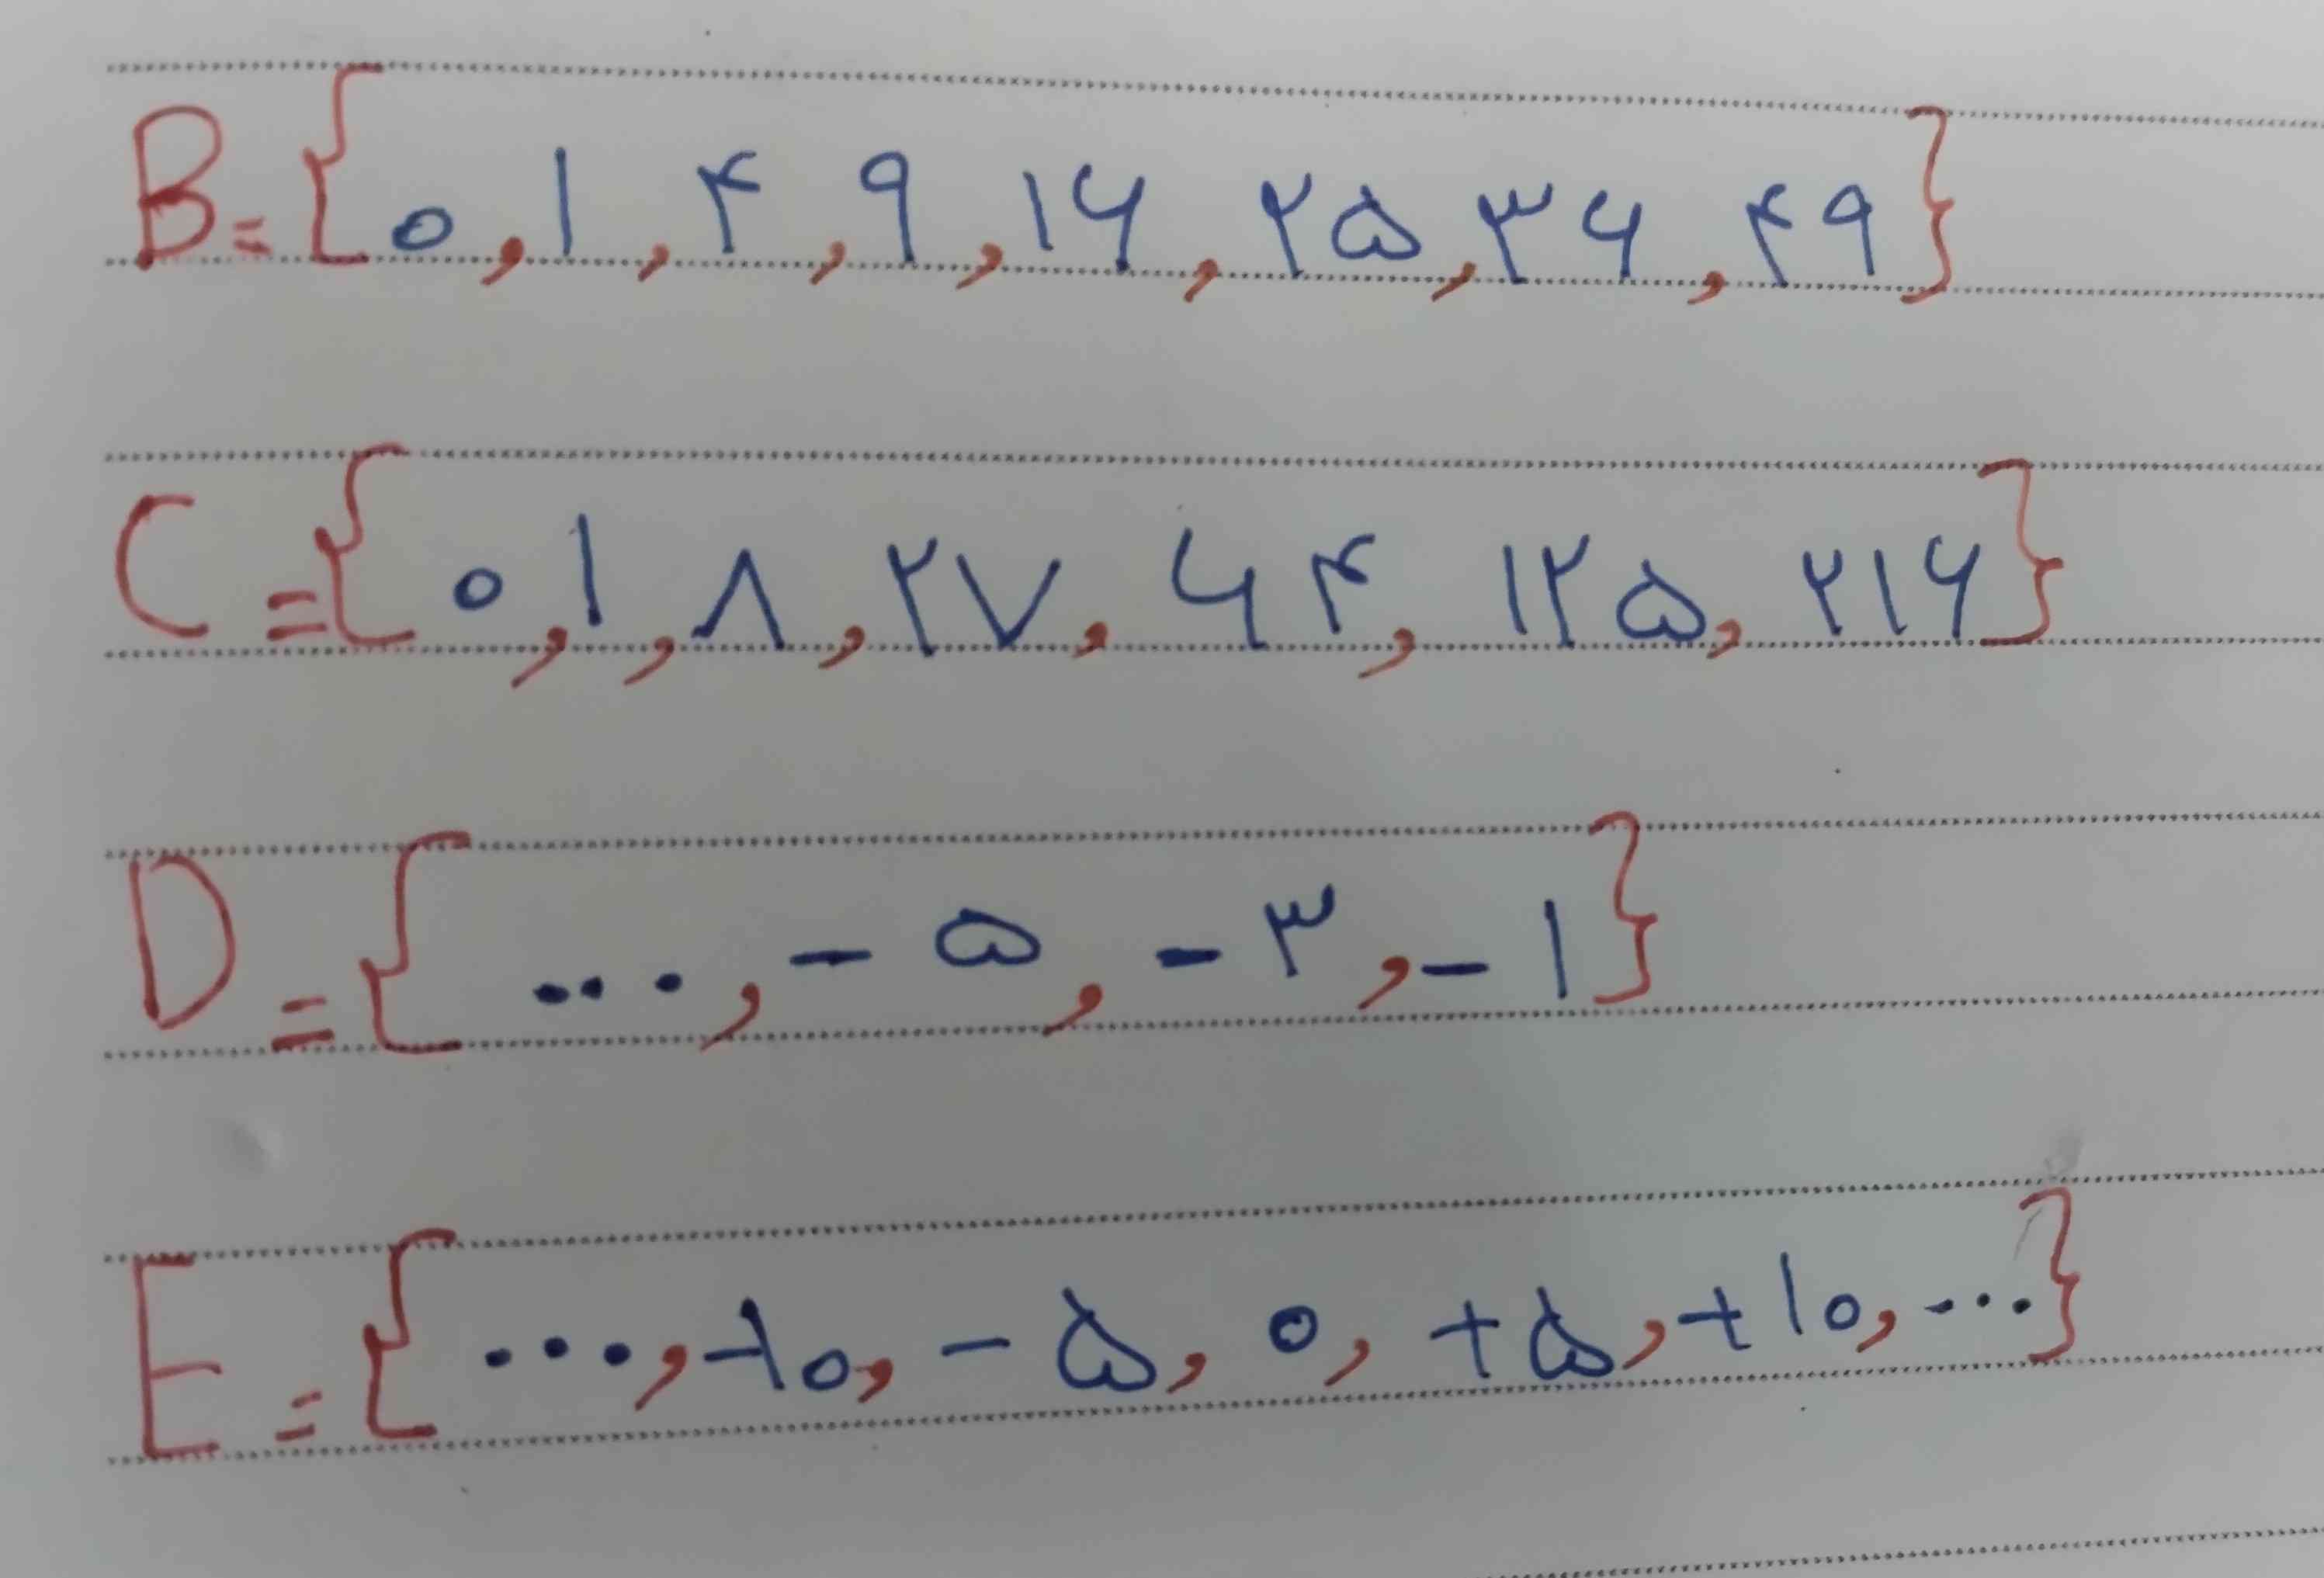 B = {۰, ۱, ۴, ۹, ۱۶, ۲۵, ۳۶, ۴۹}
C = {۰, ۱, ۸, ۲۷, ۶۴, ۱۲۵, ۲۱۶}
D = {..., -۵, -۳, -۱}
E = {..., -۱۰, -۵, ۰, +۵, +۱۰, ...}